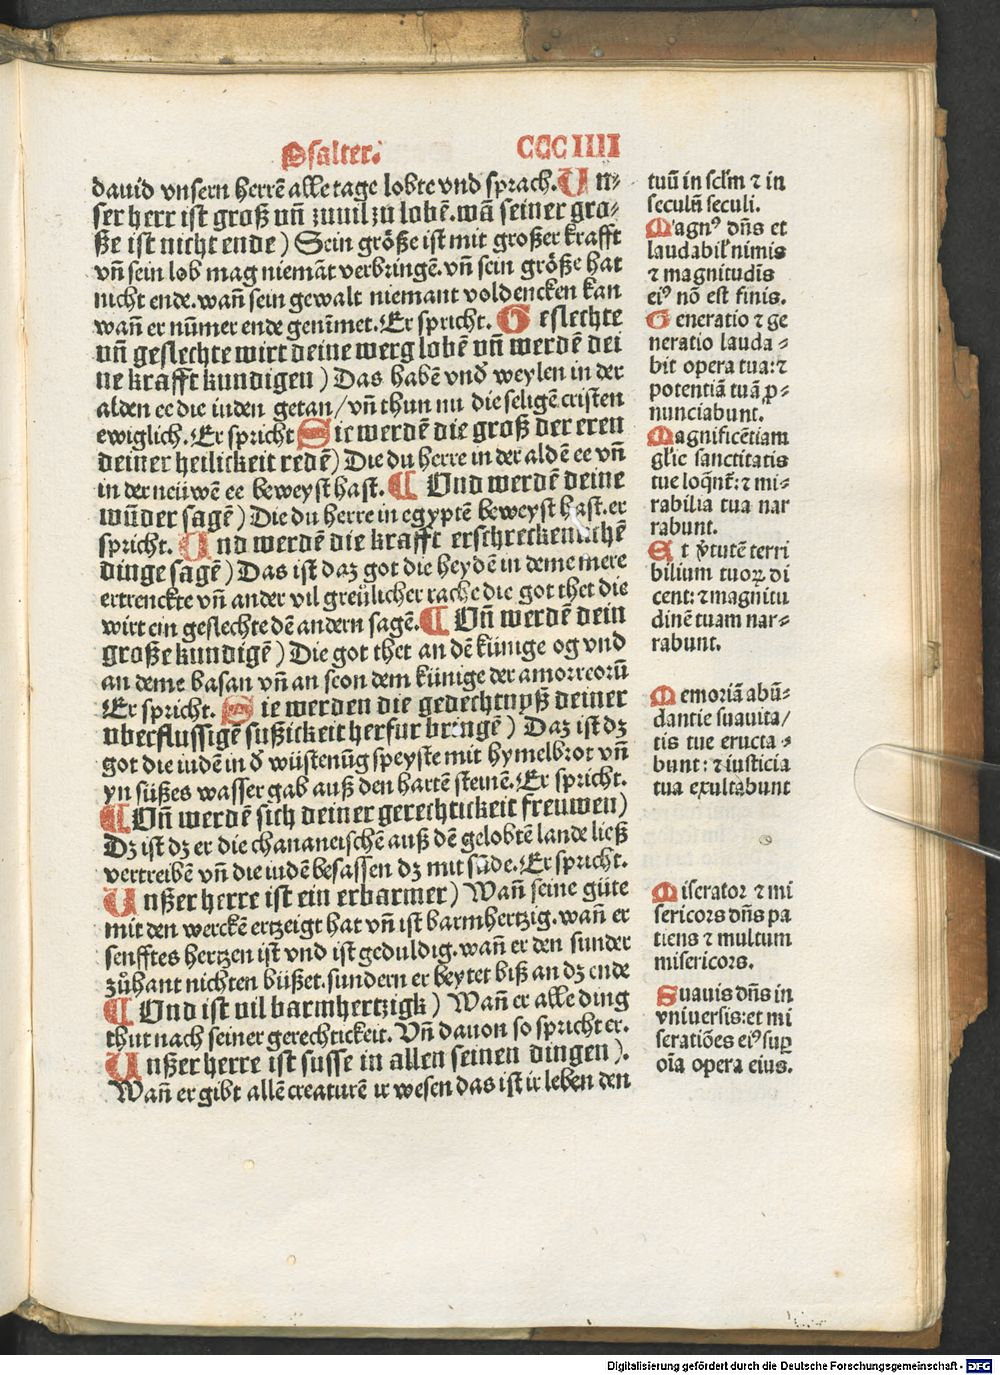 Psalter. CCCIIII
dauid vnsern herrē alle tage lobte vnd sprach. Un⸗
ser herr ist groß vn̄ zuuil zu lobē. wā seiner gro⸗
ße ist nicht ende) Sein größe ist mit großer krafft
vn̄ sein lob mag niemāt verbringē. vn̄ sein größe hat
nicht ende. wan̄ sein gewalt niemant voldencken kan
wan̄ er nūmer ende genīmet. Er spricht. Geslechte
vn̄ geslechte wirt deine werg lobē vn̄ werdē dei
ne krafft kundigen) Das habē vnd̓ weylen in der
alden ee die iuden getan/ vn̄ thun nu die seligē cristen
ewiglich. Er spricht Sie werdē die groß der eren
deiner heilickeit redē) Die du herre in der aldē ee vn̄
in der neüwē ee beweyst hast. ¶ Vnd werdē deine
wūder sagē) Die du herre in egyptē beweyst hast. er
spricht. Und werdē die krafft erschreckenlichē
dinge sagē) Das ist daz got die heydē in deme mere
ertrenckte vn̄ ander vil greülicher rache die got thet die
wirt ein geslechte dē andern sagē. ¶ Vn̄ werdē dein
große kundigē) Die got thet an dē künige og vnd
an deme basan vn̄ an seon dem künige der amorreorū
Er spricht. Sie werden die gedechtnyß deiner
vberflussigē sußickeit herfur bringē) Daz ist dz
got die iudē in d̓ wüstenūg speyste mit hymelbrot vn̄
yn süßes wasser gab auß den hartē steinē. Er spricht.
¶ Vn̄ werdē sich deiner gerechtickeit freuwen)
Dz ist dz er die chananeischē auß dē gelobtē lande ließ
vertreiben vn̄ die iudē besassen dz mit süde. Er spricht.
Unßer herre ist ein erbarmer) Wan̄ seine güte
mit den werckē ertzeigt hat vn̄ ist barmhertzig. wan̄ er
senfftes hertzen ist vnd ist geduldig. wan̄ er den sunder
zůhant nichten büßet. sundern er beytet biß an dz ende
¶ Vnd ist vil barmhertzigk) Wan̄ er alle ding
thut nach seiner gerechtickeit. Vn̄ dauon so spricht er.
Unßer herre ist susse in allen seinen dingen).
Wan̄ er gibt allē creaturē ir wesen das ist ir leben den
tuū in sclm̄ ⁊ in
seculū seculi.
Magnꝰ dn̄s et
laudabil' nimis
⁊ magnitudīs
eiꝰ nō est finis.
Generatio ⁊ ge
neratio lauda⸗
bit opera tua: ⁊
potentiā tuā ꝓ⸗
nunciabunt.
Magnificētiam
gl'ie sanctitatis
tue loqn̄t: ⁊ mi⸗
rabilia tua nar
rabunt.
Et v̓tutē terri
bilium tuoꝝ di
cent: ⁊ magnitu
dinē tuam nar⸗
rabunt.
Memoriā abū⸗
dantie suauita/
tis tue eructa⸗
bunt: ⁊ iusticia
tua exultabunt
Miserator ⁊ mi
sericors dn̄s pa
tiens ⁊ multum
misericors.
Suauis dn̄s in
vniuersis: et mi
seratiōes eiꝰ suꝑ
oīa opera eius.
Digitalisierung gefördert durch die Deutsche Forschungsgemeinschaft - DFG